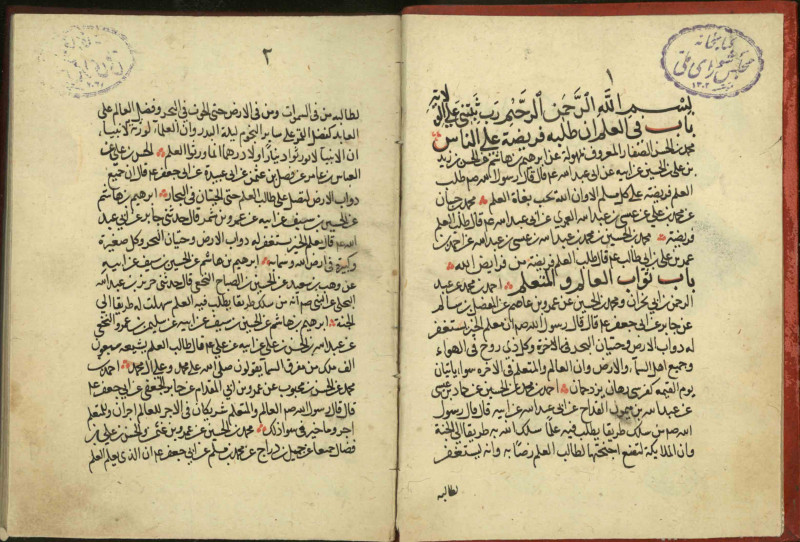 ١
بسم الله الرحمن الرحيم رب
باب في العلم ان طلبه فريضة على الناس
محمد بن الحسن الصفار المعروف عن ابرهيم بن هاشم عن الحسن بن زيد
بن علي بن الحسين عن ابيه عن ابي عبد الله ع قال قال رسول الله صم طلب
العلم فريضة على كل مسلم الا وان الله يحب بغاة العلم محمد بن حسان
عن محمد بن علي عن عيسى بن عبد الله العمري عن ابي عبد الله ع قال طلب العلم
فريضة محمد بن الحسين عن محمد بن عبد الله عن عيسى بن عبد الله عن احمد بن
عمر بن علي بن ابي طالب ع قال طلب العلم فريضة من فرايض الله
باب ثواب العالم والمتعلم احمد بن محمد عن عبد
الرحمن بن ابي نجران ومحمد بن الحسين عن عمرو بن عاصم عن المفضل بن سالم
عن جابر عن ابي جعفر ع قال قال رسول الله صم ان معلم الخير يستغفر
له دواب الارض وحيتان البحر وكل ذي روح في الهواء
وجميع اهل السماء والارض وان العالم والمتعلم في الاجر سواء ياتيان
يوم القيمة كفرسي رهان يزدحمان احمد بن محمد عن الحسين عن حماد بن عيسى
عن عبد الله بن ميمون القداح عن ابي عبد الله عن ابيه قال قال رسول
الله صم من سلك طريقا يطلب فيه علما سلك الله به طريقا الى الجنة
وان الملايكة لتضع اجنحتها لطالب العلم رضا به وانه يستغفر
لطالبه
٢
لطالبه من في السموات ومن في الارض حتى الحوت في البحر وفضل العالم على
العابد كفضل القمر على ساير النجوم ليلة البدر وان العلماء لورثة الانبياء
ان الانبياء لم يورثوا دينارا ولا درهما ولكن ورثوا العلم الحسن بن علي عن
العباس بن عامر عن فضل بن عثمن عن ابي عبيدة عن ابي جعفر ع قال ان جميع
دواب الارض لتصلي على طالب العلم حتى الحيتان في البحار ابرهيم بن هاشم
عن الحسين بن سيف عن ابيه عن عمرو بن شمر قال حدثني جابر عن ابي عبد
الله ع قال معلم الخير يستغفر له دواب الارض وحيتان البحر وكل صغيرة
وكبيرة في ارض الله وسمائه ابرهيم بن هاشم عن الحسين بن سيف عن ابيه
عن وهب بن سعيد عن الحسين بن الصباح النخعي قال حدثني جرير بن عبد الله
البجلي عن النبي صم انه من سلك طريقا يطلب فيه العلم سهلت له طريقا الى
الجنة ابرهيم بن هاشم عن الحسين بن سيف عن ابيه عن سليمن بن عمرو النخعي
عن عبد الله بن الحسن بن علي عن ابيه عن علي ع قال طالب العلم يشيعه سبعون
الف ملك من مفرق السماء يقولون صلى الله على محمد وعلى ال محمد احمد بن
محمد عن الحسن بن محبوب عن عمرو بن ابي المقدام عن جابر الجعفي عن ابي جعفر ع
قال قال رسول الله صم العالم والمتعلم شريكان في الاجر للعالم اجران وللمتعلم
اجر ولا خير في سوا ذلك محمد بن الحسين عن عمرو بن عثمن والحسن بن علي بن
فضال جميعا عن جميل بن دراج عن محمد بن مسلم عن ابي جعفر ع ان الذي يعلم العلم